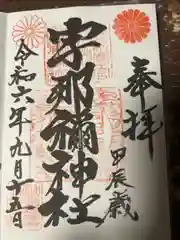 奉拝
甲辰歳
宇那禰神社
令和六年九月十五日